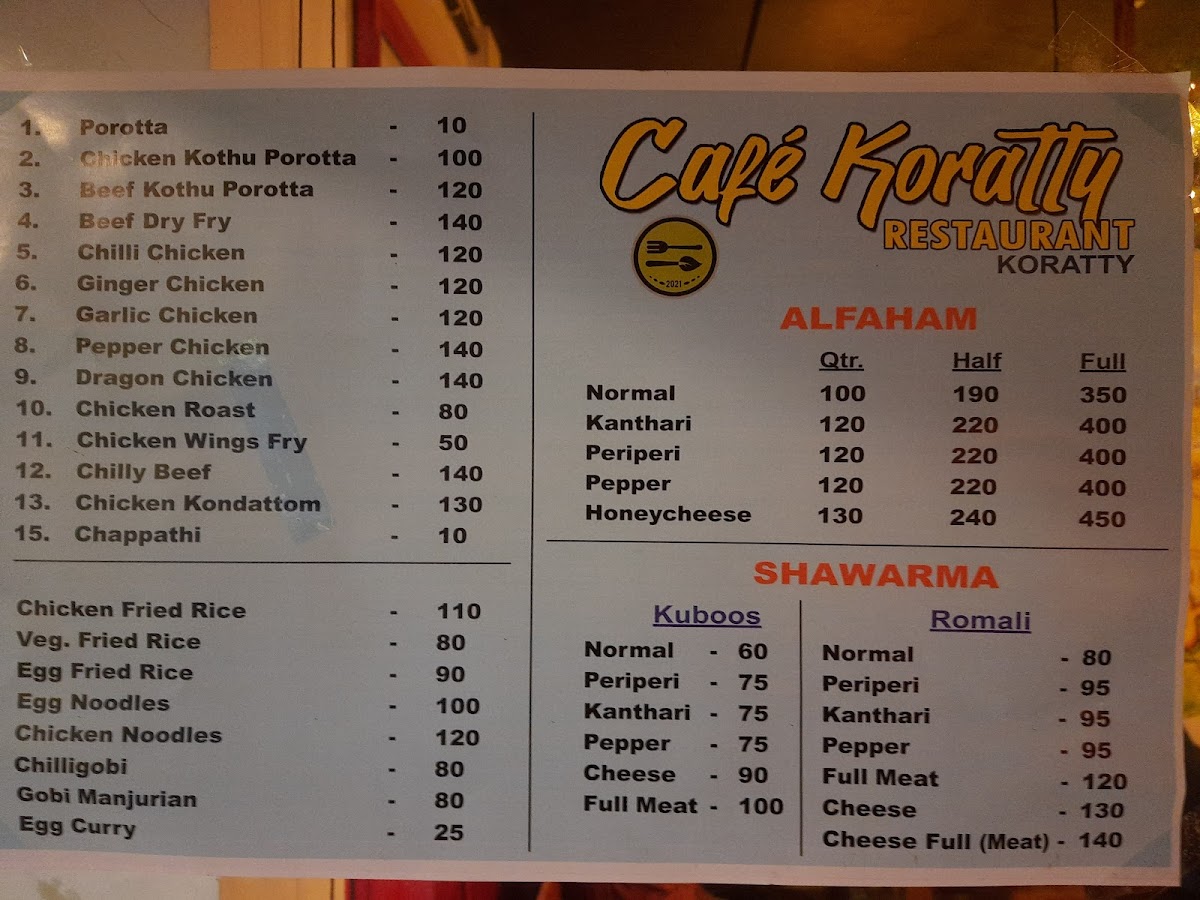 1. Porotta - 10
2. Chicken Kothu Porotta - 100
3. Beef Kothu Porotta - 120
4. Beef Dry Fry - 140
5. Chilli Chicken - 120
6. Ginger Chicken - 120
7. Garlic Chicken - 120
8. Pepper Chicken - 140
9. Dragon Chicken - 140
10. Chicken Roast - 80
11. Chicken Wings Fry - 50
12. Chilly Beef - 140
13. Chicken Kondattom - 130
15. Chappathi - 10
Chicken Fried Rice - 110
Veg. Fried Rice - 80
Egg Fried Rice - 90
Egg Noodles - 100
Chicken Noodles - 120
Chilligobi - 80
Gobi Manjurian - 80
Egg Curry - 25
Café Koratty
RESTAURANT
KORATTY
2021
ALFAHAM
Qtr. Half Full
Normal 100 190 350
Kanthari 120 220 400
Periperi 120 220 400
Pepper 120 220 400
Honeycheese 130 240 450
SHAWARMA
Kuboos
Normal - 60
Periperi - 75
Kanthari - 75
Pepper - 75
Cheese - 90
Full Meat - 100
Romali
Normal - 80
Periperi - 95
Kanthari - 95
Pepper - 95
Full Meat - 120
Cheese - 130
Cheese Full (Meat) - 140